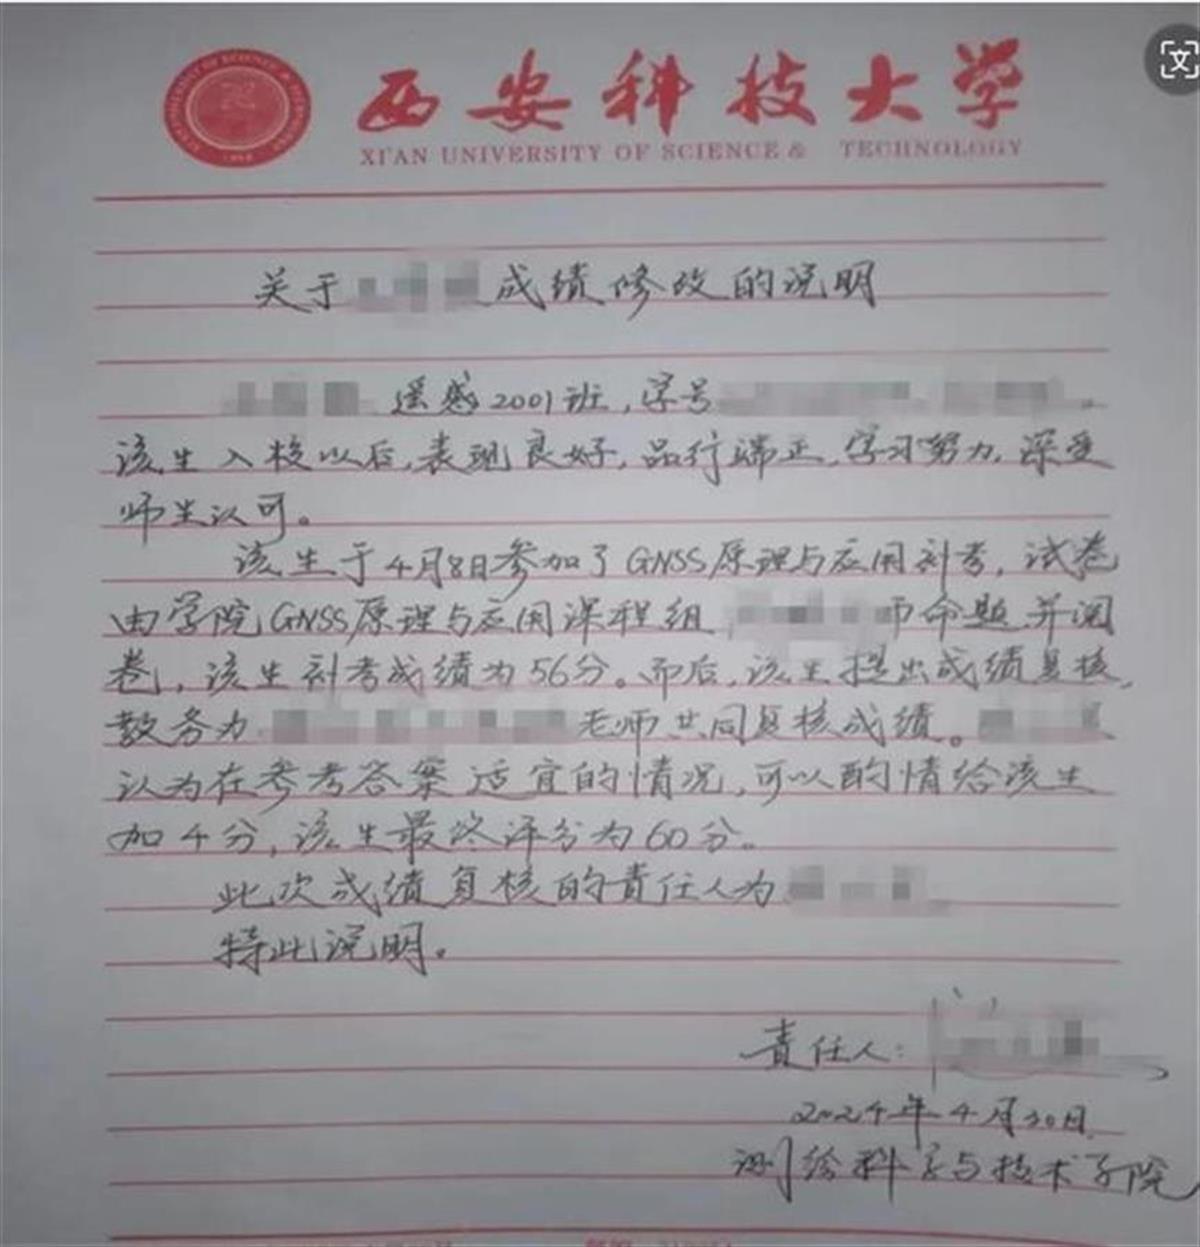 西安科技大学
XI'AN UNIVERSITY OF SCIENCE & TECHNOLOGY
关于 成绩修改的说明
遥感2001班，学号
该生入校以后，表现良好，品行端正，学习努力，深受
师生认可。
该生于4月8日参加了GNSS原理与应用补考，试卷
由学院GNSS原理与应用课程组 师命题并阅
卷，该生补考成绩为56分。而后，该生提出成绩复核，
教务办 老师共同复核成绩。
认为在参考答案适宜的情况，可以酌情给该生
加4分，该生最终评分为60分。
此次成绩复核的责任人为
特此说明。
责任人：
2024年4月30日
测绘科学与技术学院